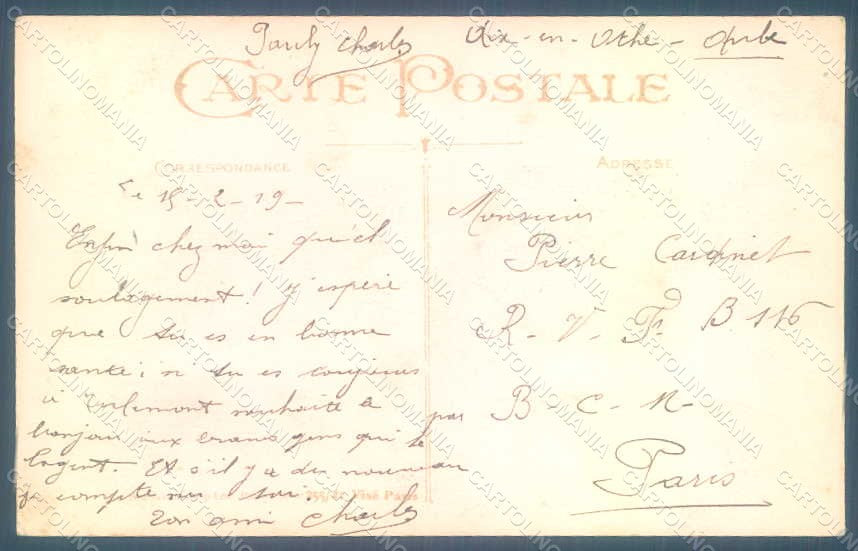 Pauly Charles Aix-en-Othe - Aube
CARTE POSTALE
CORRESPONDANCE
ADRESSE
Le 15-2-19-
Enfin chez moi quel
soulagement! J'espère
que tu es en bonne
santé; si tu es toujours
à souhaite le
bonjour aux braves gens qui te
logent. Et s'il y a du nouveau
je compte sur toi.
Ton ami Charles
Visé Paris
Monsieur
Pierre Cardinet
R. V. F. B 116
par B. C. M.
Paris
CARTOLINOMANIA